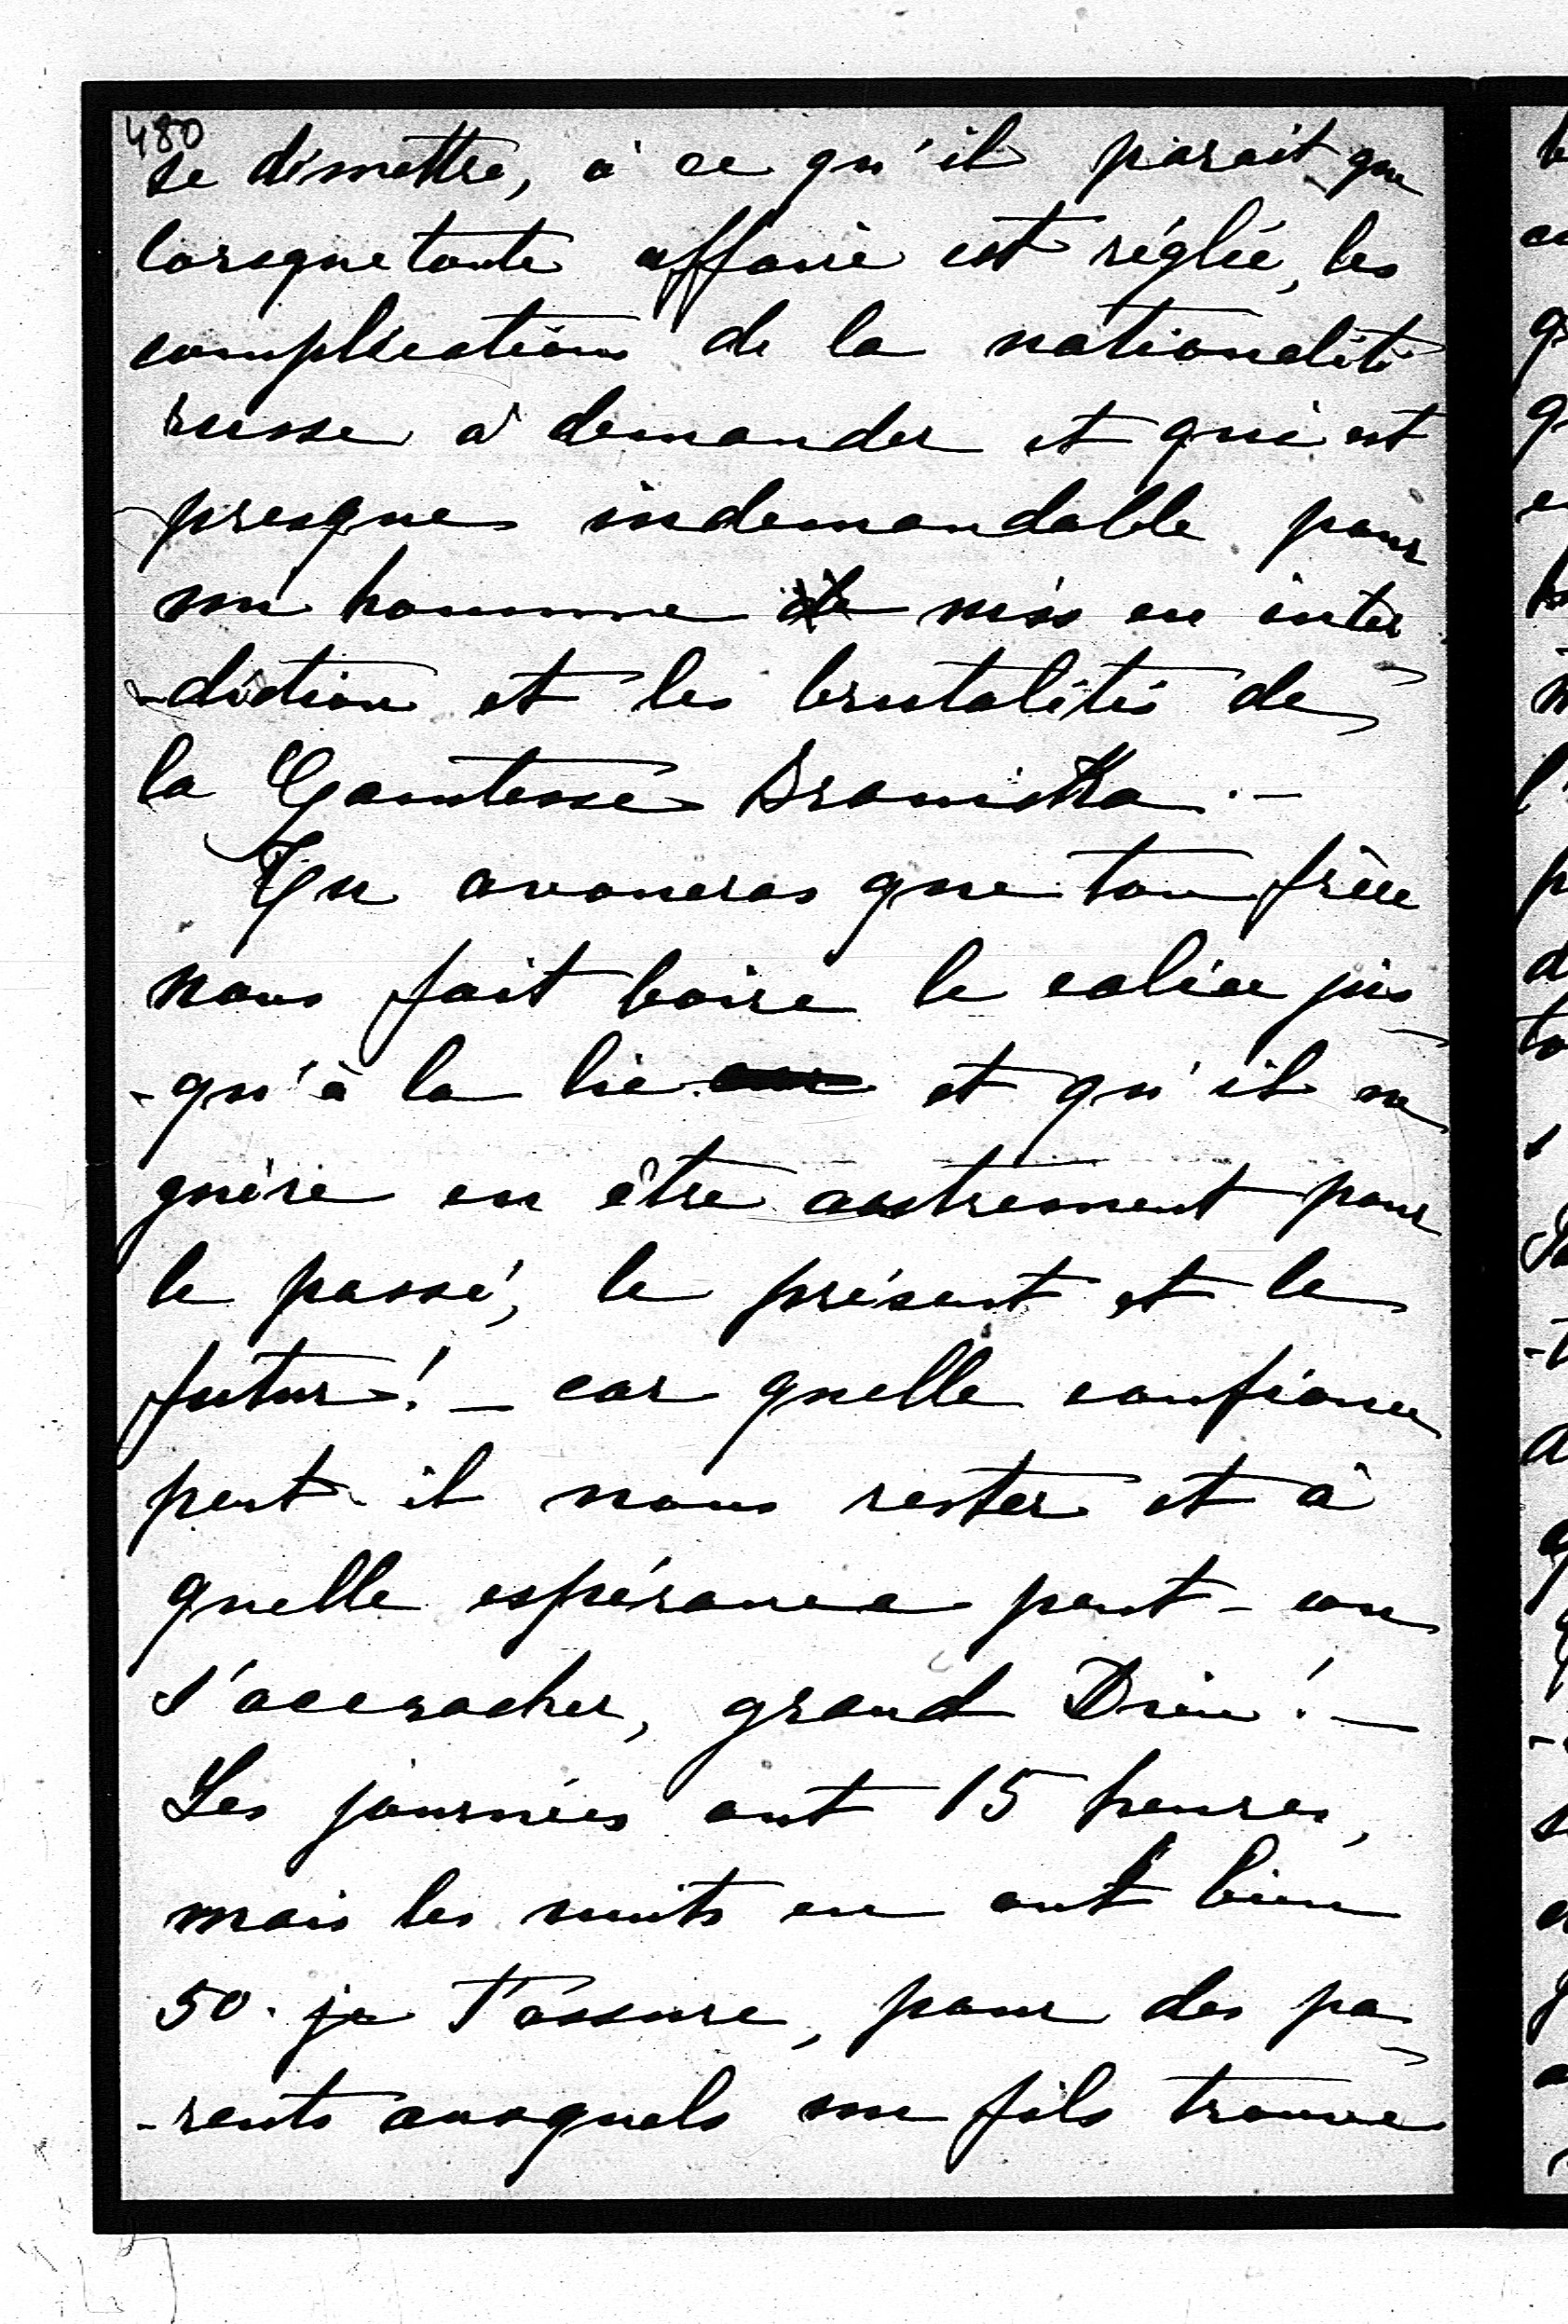 480
se démettre, à ce qu'il parait que
lorsque toute affaire est réglée, les
complications de la nationalité
russe à demander et qui est
presque indemandable pour
un homme mis en inter
-diction et les brutalités de
la Comtesse Branicka. -
Tu avoueras que ton frère
nous fait boire le calice jus
-qu'à la lie et qu'il ne
guère en être autrement pour
le passé, le présent et le
futur! - car quelle confiance
peut-il nous rester et à
quelle espérance peut-on
s'accrocher, grand Dieu! -
Les journées ont 15 heures,
mais les nuits en ont bien
50. je t'assure, pour des pa
-rents auxquels un fils trouve